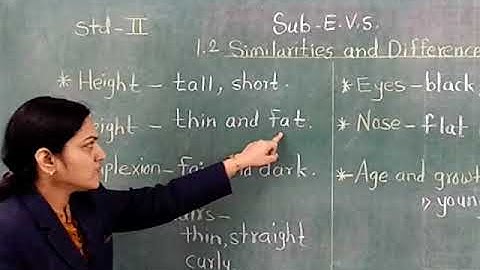 Std-II
Sub-E.V.S.
1.2 Similarities and Difference
* Height - tall, short.
eight - thin and fat.
plexion - fair and dark.
airs -
thin, straight
curly
* Eyes - black,
* Nose - flat
* Age and growt
» young